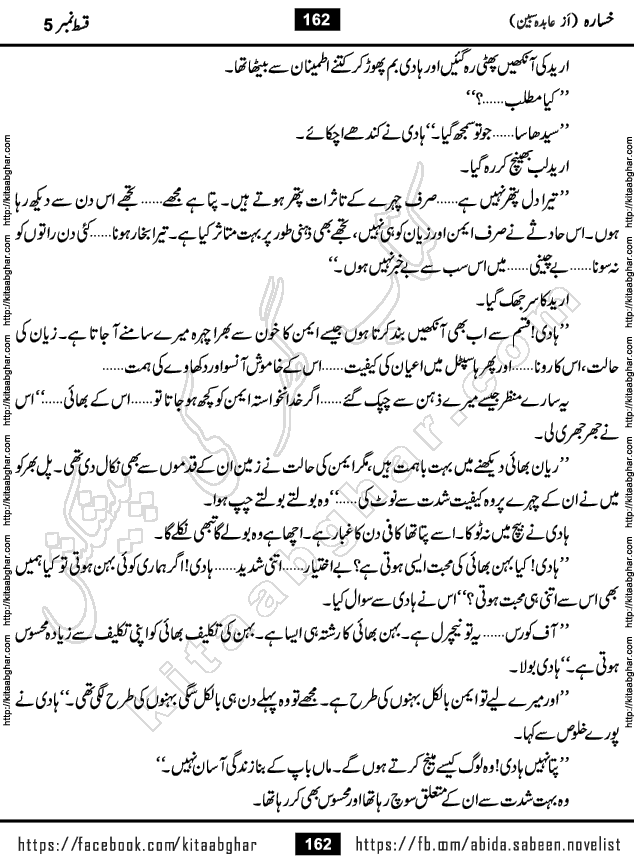 خسارہ (از عابدہ سبین) 162 قسط نمبر 5
ارید کی آنکھیں پھٹی رہ گئیں اور ہادی بم پھوڑ کر کتنے اطمینان سے بیٹھا تھا۔
’’کیا مطلب......؟‘‘
’’سیدھا سا...... جو تو سمجھ گیا۔‘‘ ہادی نے کندھے اچکائے۔
ارید لب بھینچ کر رہ گیا۔
’’تیرا دل پتھر نہیں ہے...... صرف چہرے کے تاثرات پتھر ہوتے ہیں۔ پتا ہے مجھے...... تجھے اس دن سے دیکھ رہا
ہوں۔ اس حادثے نے صرف ایمن اور زیان کو ہی نہیں، تجھے بھی ذہنی طور پر بہت متاثر کیا ہے۔ تیرا بخار ہونا...... کئی دن راتوں کو
نہ سونا...... بے چینی...... میں اس سب سے بے خبر نہیں ہوں۔‘‘
ارید کا سر جھک گیا۔
’’ہادی! قسم سے اب بھی آنکھیں بند کرتا ہوں جیسے ایمن کا خون سے بھرا چہرہ میرے سامنے آ جاتا ہے۔ زیان کی
حالت، اس کا رونا...... اور پھر ہاسپٹل میں اعیان کی کیفیت...... اس کے خاموش آنسو اور دکھاوے کی ہمت......
یہ سارے منظر جیسے میرے ذہن سے چپک گئے...... اگر خدانخواستہ ایمن کو کچھ ہو جاتا تو...... اس کے بھائی......‘‘ اس
نے جھرجھری لی۔
’’ریان بھائی دیکھنے میں بہت باہمت ہیں، مگر ایمن کی حالت نے زمین ان کے قدموں سے بھی نکال دی تھی۔ پل بھر کو
میں نے ان کے چہرے پر وہ کیفیت شدت سے نوٹ کی......‘‘ وہ بولتے بولتے چپ ہوا۔
ہادی نے بیچ میں نہ ٹوکا۔ اسے پتا تھا کافی دن کا غبار ہے۔ اچھا ہے وہ بولے گا تبھی نکلے گا۔
’’ہادی! کیا بہن بھائی کی محبت ایسی ہوتی ہے؟ بے اختیار...... اتنی شدید...... ہادی! اگر ہماری کوئی بہن ہوتی تو کیا ہمیں
بھی اس سے اتنی ہی محبت ہوتی؟‘‘ اس نے ہادی سے سوال کیا۔
’’آف کورس...... یہ تو نیچرل ہے۔ بہن بھائی کا رشتہ ہی ایسا ہے۔ بہن کی تکلیف بھائی کو اپنی تکلیف سے زیادہ محسوس
ہوتی ہے۔‘‘ ہادی بولا۔
’’اور میرے لیے تو ایمن بالکل بہنوں کی طرح ہے۔ مجھے تو وہ پہلے دن ہی بالکل سگی بہنوں کی طرح لگی تھی۔‘‘ ہادی نے
پورے خلوص سے کہا۔
’’پتا نہیں ہادی! وہ لوگ کیسے مینج کرتے ہوں گے۔ ماں باپ کے بنا زندگی آسان نہیں۔‘‘
وہ بہت شدت سے ان کے متعلق سوچ رہا تھا اور محسوس بھی کر رہا تھا۔
کتاب گھر کی پیشکش
kitaabghar.com
http://kitaabghar.com http://kitaabghar.com http://kitaabghar.com http://kitaabghar.com http://kitaabghar.com http://kitaabghar.com
http://kitaabghar.com http://kitaabghar.com http://kitaabghar.com http://kitaabghar.com http://kitaabghar.com http://kitaabghar.com
https://facebook.com/kitaabghar 162 https://fb.com/abida.sabeen.novelist